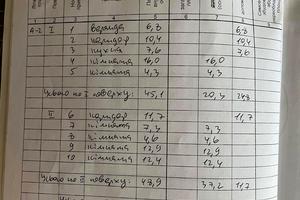 5 6 7 8
А-2 I 1 веранда 6,8 6,8
2 коридор 10,4 10,4
3 кухня 7,6 7,6
4 кімната 16,0 16,0
5 кімната 4,3 4,3
Усього по I поверху: 45,1 20,3 24,8
II 6 коридор 11,7 11,7
7 кімната 7,3 7,3
8 кімната 4,6 4,6
9 кімната 12,9 12,9
10 кімната 12,4 12,4
Усього по II поверху: 48,9 37,2 11,7